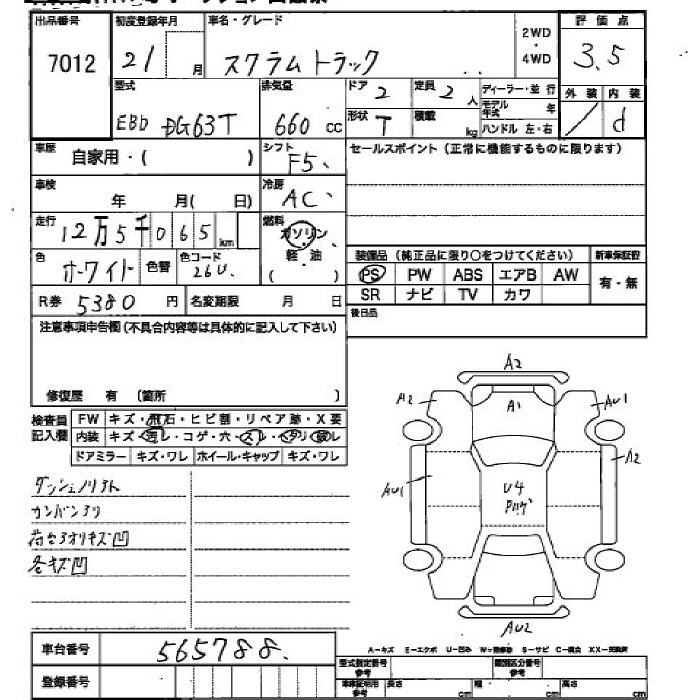 出品番号 初度登録年月 車名・グレード 2WD・4WD 評価点
7012 21 月 スクラムトラック 3.5
型式 排気量 ドア 2 定員 2 人 ディーラー・並行 外装 内装
EBD DG63T 660 cc 形状 T 積載 kg モデル年式 年 d
ハンドル 左・右
車歴 自家用・( ) シフト F5 セールスポイント(正常に機能するものに限ります)
車検 年 月( 日) 冷房 AC
走行 12万5千065 km 燃料 ガソリン 軽・油 ( )
装備品(純正品に限り〇をつけてください) 新車保証書
色 ホワイト 色替 色コード 26U PS PW ABS エアB AW 有・無
SR ナビ TV カワ
R券 5380 円 名変期限 月 日 後日品
注意事項申告欄(不具合内容等は具体的に記入して下さい)
修復歴 有 (箇所 )
検査員記入欄 FW キズ・飛石・ヒビ割・リペア跡・X要
内装 キズ・
コゲ・穴・スレ・
ドアミラー キズ・ワレ ホイール・キャップ キズ・ワレ
カンバン
キズ凹
キズ凹
A2
A2 A1 AU1
AU1 U4 A2
AU2
A-キズ E-エクボ U-凹み W-補修跡 S-サビ C-腐食 XX-交換済
車台番号 565788
登録番号
型式指定番号 参考 類別区分番号 参考
車体証明用 参考 長さ cm 幅 cm 高さ cm